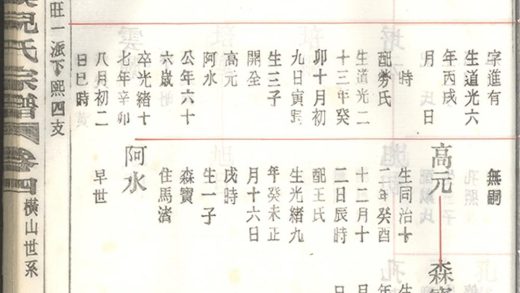 字進有
生道光六
年丙戌
月 日
時
配勞氏
生道光二
十三年癸
卯十月初
九日寅時
生三子
開全
高元
阿水
公年六十
六歲
卒光緒十
七年辛卯
八月初二
日巳時
無嗣
高元
生同治十
二年癸酉
十二月十
二日辰時
配王氏
生光緒九
年癸未正
月十六日
戌時
生一子
森寶
住馬渚
阿水
早世
森
旺一派下熙四支
氏宗譜 卷四 橫山世系